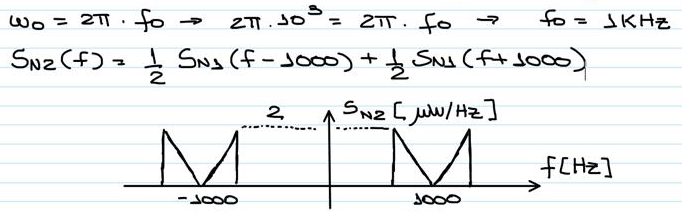 ω0 = 2π · f0 → 2π.10³ = 2π. f0 → f0 = 1KHz
SN2(f) = 1/2 SN1(f-1000) + 1/2 SN1(f+1000)
2 SN2 [μW/Hz]
f[Hz]
-1000 1000